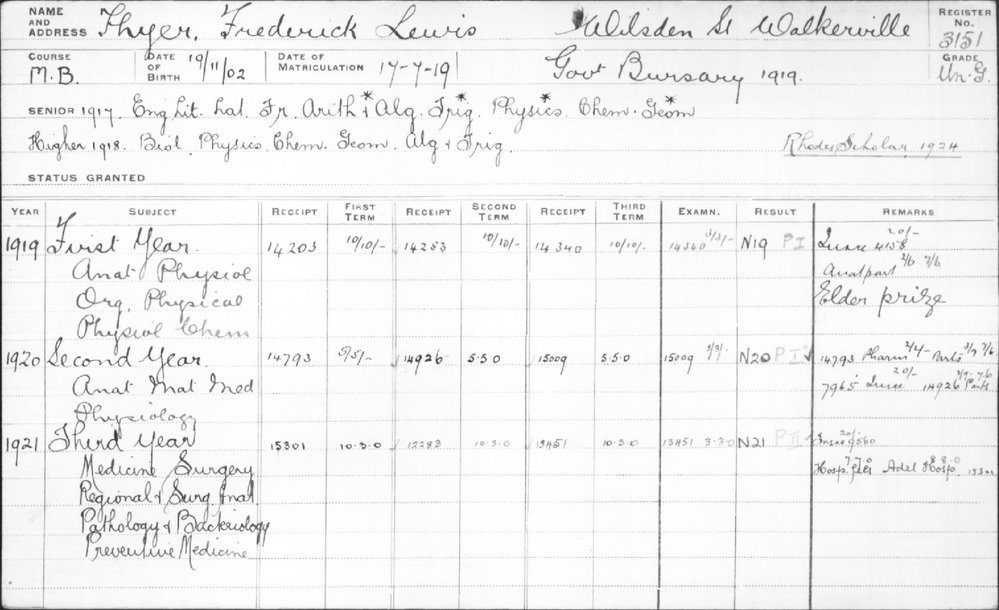 NAME AND ADDRESS Thyer, Frederick Lewis Wilsden St Walkerville REGISTER No. 3151
COURSE M.B. DATE OF BIRTH 19/11/02 DATE OF MATRICULATION 17-7-19 Govt Bursary 1919. GRADE Un. G.
SENIOR 1917. Eng Lit. Lat. Fr. Arith & Alg.* Trig.* Physics.* Chem. Geom*
Higher 1918. Biol. Physics. Chem. Geom. Alg & Trig. Rhodes Scholar, 1924
STATUS GRANTED
YEAR SUBJECT RECEIPT FIRST TERM RECEIPT SECOND TERM RECEIPT THIRD TERM EXAMN. RESULT REMARKS
1919 First Year. 14203 10/10/- 14253 10/10/- 14340 10/10/- 14340 3/3/- N19 P I 20/- 4158
Anat Physiol Anat part 2/6 7/6
Org. Physical Elder prize
Physiol Chem
1920 Second Year. 14793 5/5/- 14926 5.5.0 15009 5.5.0 15009 3/3/- N20 P I 14793 Pharm 2/2/- Parts 7/6
Anat Mat Med 7965 20/- 14926 7.6 Parts
Physiology
1921 Third Year 15301 10.3.0 10.3.0 13451 10.3.0 13451 3.3.0 N21 P II 20/- 9560
Medicine Surgery Hosp. fees 7.7.0 Adel Hosp. 8.8.0 15301
Regional & Surg. Anat
Pathology & Backriology
Preventive Medicine